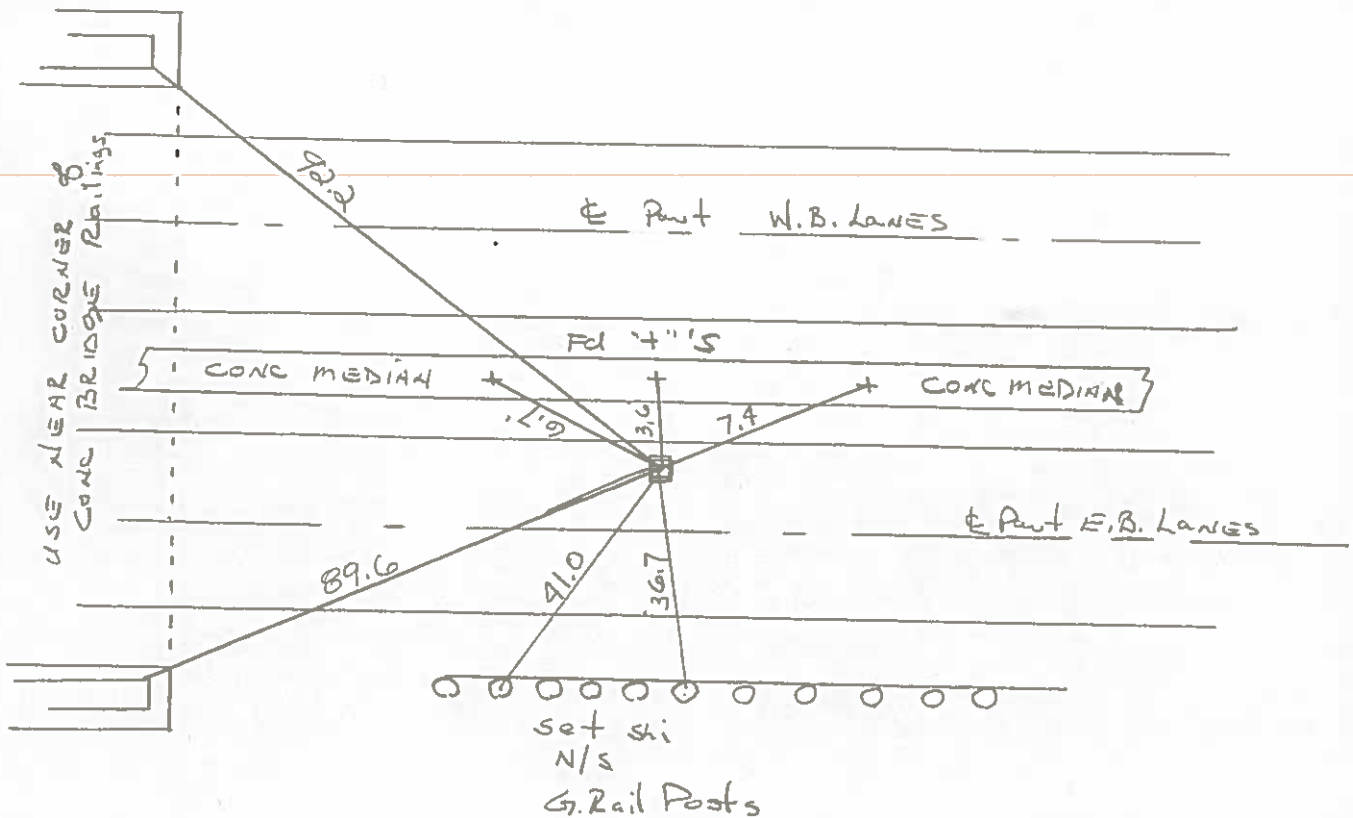 USE NEAR CORNER of
CONC BRIDGE Railings
92.2
℄ Pvmt W.B. LANES
Fd "+"'S
CONC MEDIAN
CONC MEDIAN
6.7
3.6
7.4
℄ Pvmt E.B. LANES
89.6
41.0
36.7
set shi
N/S
G.Rail Posts